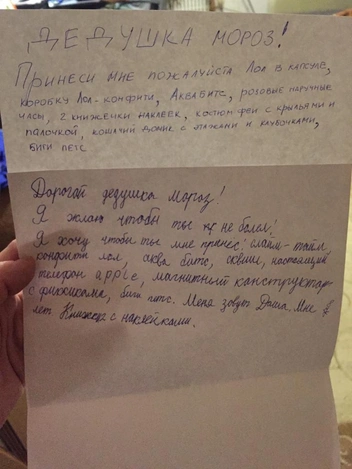 ДЕДУШКА МОРОЗ!
ПРИНЕСИ МНЕ ПОЖАЛУЙСТА ЛОЛ В КАПСУЛЕ,
КОРОБКУ ЛОЛ-КОНФЕТТИ, АКВАБИТС, РОЗОВЫЕ НАРУЧНЫЕ
ЧАСЫ, 2 КНИЖЕЧКИ НАКЛЕЕК, КОСТЮМ ФЕИ С КРЫЛЬЯМИ И
ПАЛОЧКОЙ, КОШАЧИЙ ДОМИК С ЭТАЖАМИ И КЛУБОЧКАМИ,
БИГИ ПЕТС
Дорогой дедушка мороз!
Я желаю чтобы ты не болел!
Я хочу чтобы ты мне принес: слайм-тайм,
конфети лол, аква битс, сквиши, настоящий
телефон apple, магнитный конструктор
с фиксиками, биги петс. Меня зовут Даша. Мне
лет Книжка с наклейками.